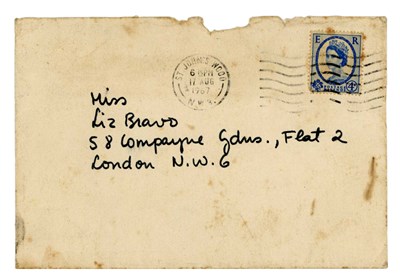 E R
ST JOHN'S WOOD
6-PM
17 AUG
1967
N.W.8.
Miss
Liz Bravo
58 Compayne Gdns., Flat 2
London N.W.6